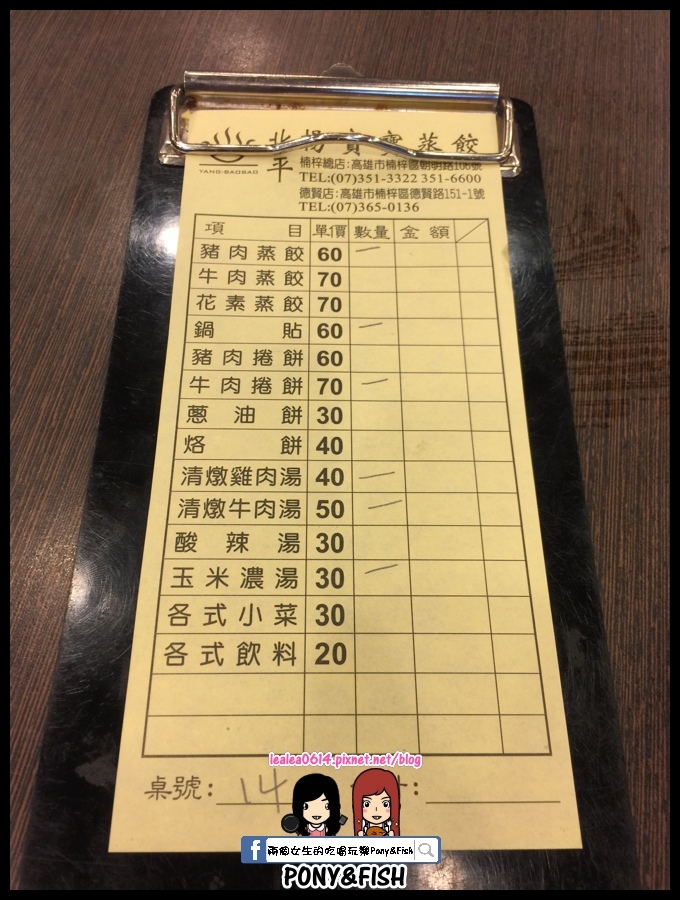 北平楊寶寶蒸餃
YANG-BAOBAO
楠梓總店:高雄市楠梓區朝明路106號
TEL:(07)351-3322 351-6600
德賢店:高雄市楠梓區德賢路151-1號
TEL:(07)365-0136
項目 單價 數量 金額
豬肉蒸餃 60 一
牛肉蒸餃 70
花素蒸餃 70
鍋貼 60 一
豬肉捲餅 60
牛肉捲餅 70 一
蔥油餅 30
烙餅 40
清燉雞肉湯 40 一
清燉牛肉湯 50 一
酸辣湯 30
玉米濃湯 30 一
各式小菜 30
各式飲料 20
lealea0614.pixnet.net/blog
桌號: 14
兩個女生的吃喝玩樂Pony&Fish
PONY&FISH